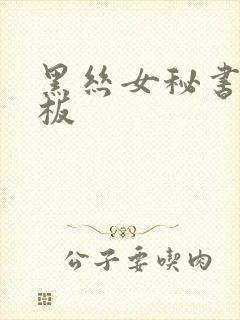 黑丝女秘书
板
公子要喫肉